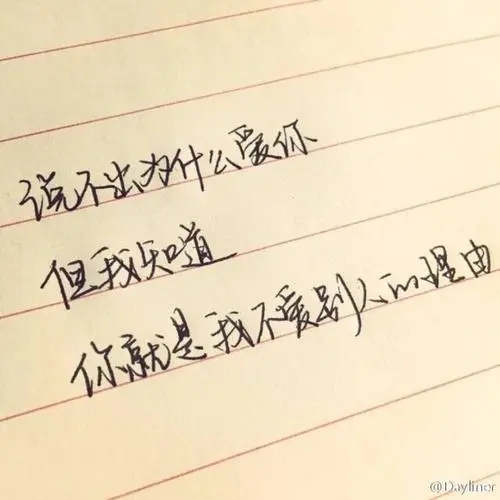 说不出为什么爱你
但我知道
你就是我不爱别人的理由
@Dayliner